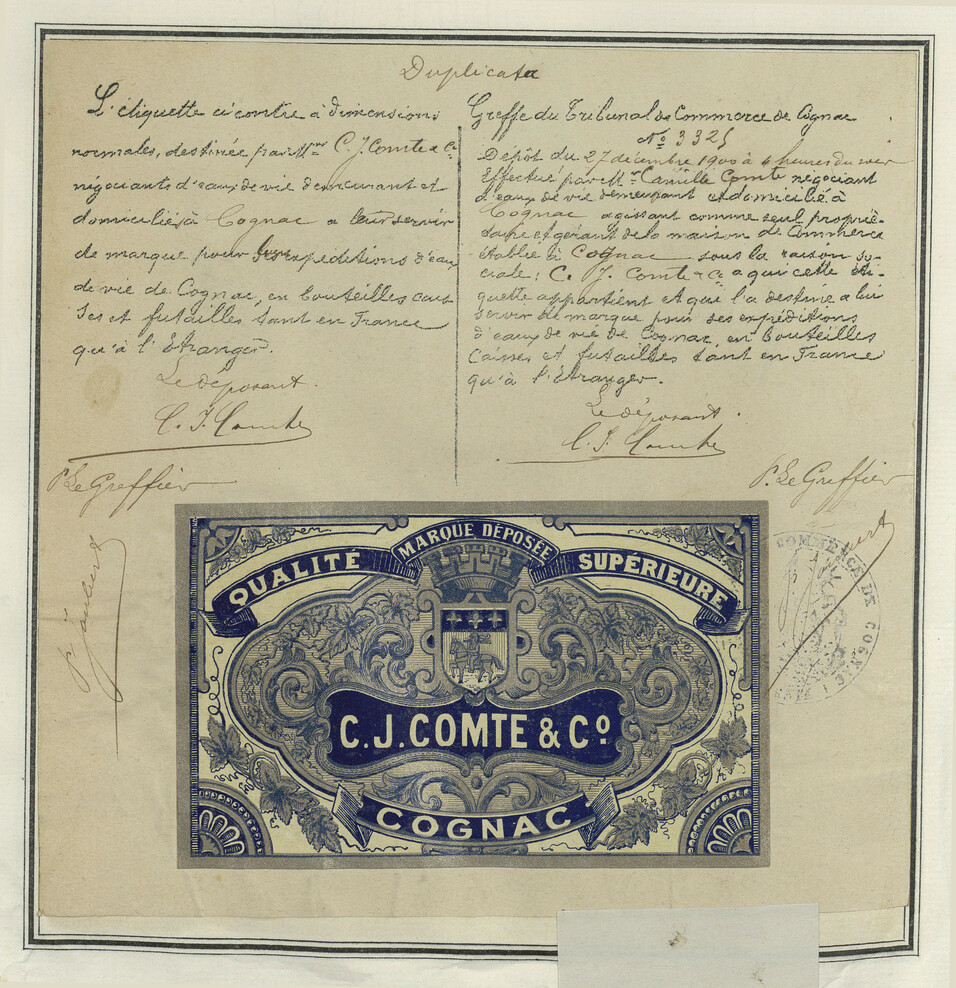 Duplicata
L'étiquette ci contre à dimensions
normales, destinée par MM. C. J. Comte & Cie
négociants d'eaux de vie demeurant et
domiciliés à Cognac a leur servir
de marque pour leurs expéditions d'eaux
de vie de Cognac, en bouteilles cais
ses et futailles tant en France
qu'à l'Étranger.
Le déposant.
C. J. Comte
P. Le Greffier
P. Joubert
Greffe du Tribunal de Commerce de Cognac
No 3325
Dépôt du 27 décembre 1900 à 4 heures du soir
Effectué par Mr Camille Comte négociant
d'eaux de vie demeurant et domicilié à
Cognac agissant comme seul proprié-
taire et gérant de la maison de Commerce
établie à Cognac sous la raison so-
ciale: C. J. Comte & Cie a qui cette éti-
quette appartient et qui l'a destine a lui
servir de marque pour ses expéditions
d'eaux de vie de Cognac, en bouteilles
Caisses et futailles tant en France
qu'à l'Étranger.
Le déposant.
C. J. Comte
P. Le Greffier
COMMERCE DE COGNAC
QUALITÉ MARQUE DÉPOSÉE SUPÉRIEURE
C. J. COMTE & Co
COGNAC